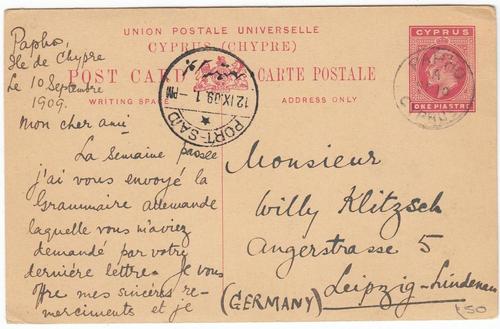 UNION POSTALE UNIVERSELLE
CYPRUS (CHYPRE)
POST CARD
CARTE POSTALE
WRITING SPACE
ADDRESS ONLY
CYPRUS
ONE PIASTRE
PORT-SAID
12 IX 09. 1 PM
Papho,
Ile de Chypre
Le 10 Septembre
1909.
Mon cher ami
La Semaine passée
j'ai vous envoyé la
Grammaire allemande
laquelle vous m'aviez
demandé par votre
dernière lettre. Je vous
offre mes sincères re-
merciments et je
Monsieur
Willy Klitzsch
Angerstrasse 5
Leipzig-Lindenau
(GERMANY)
£50